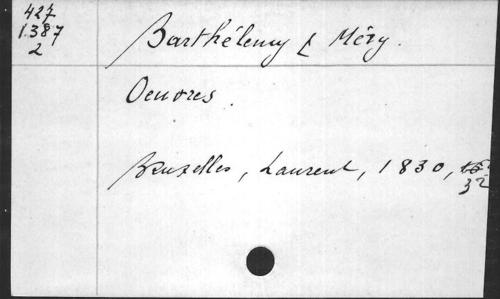 427
1.387
2
Barthélemy & Méry.
Oeuvres.
Bruxelles, Laurent, 1830,
32